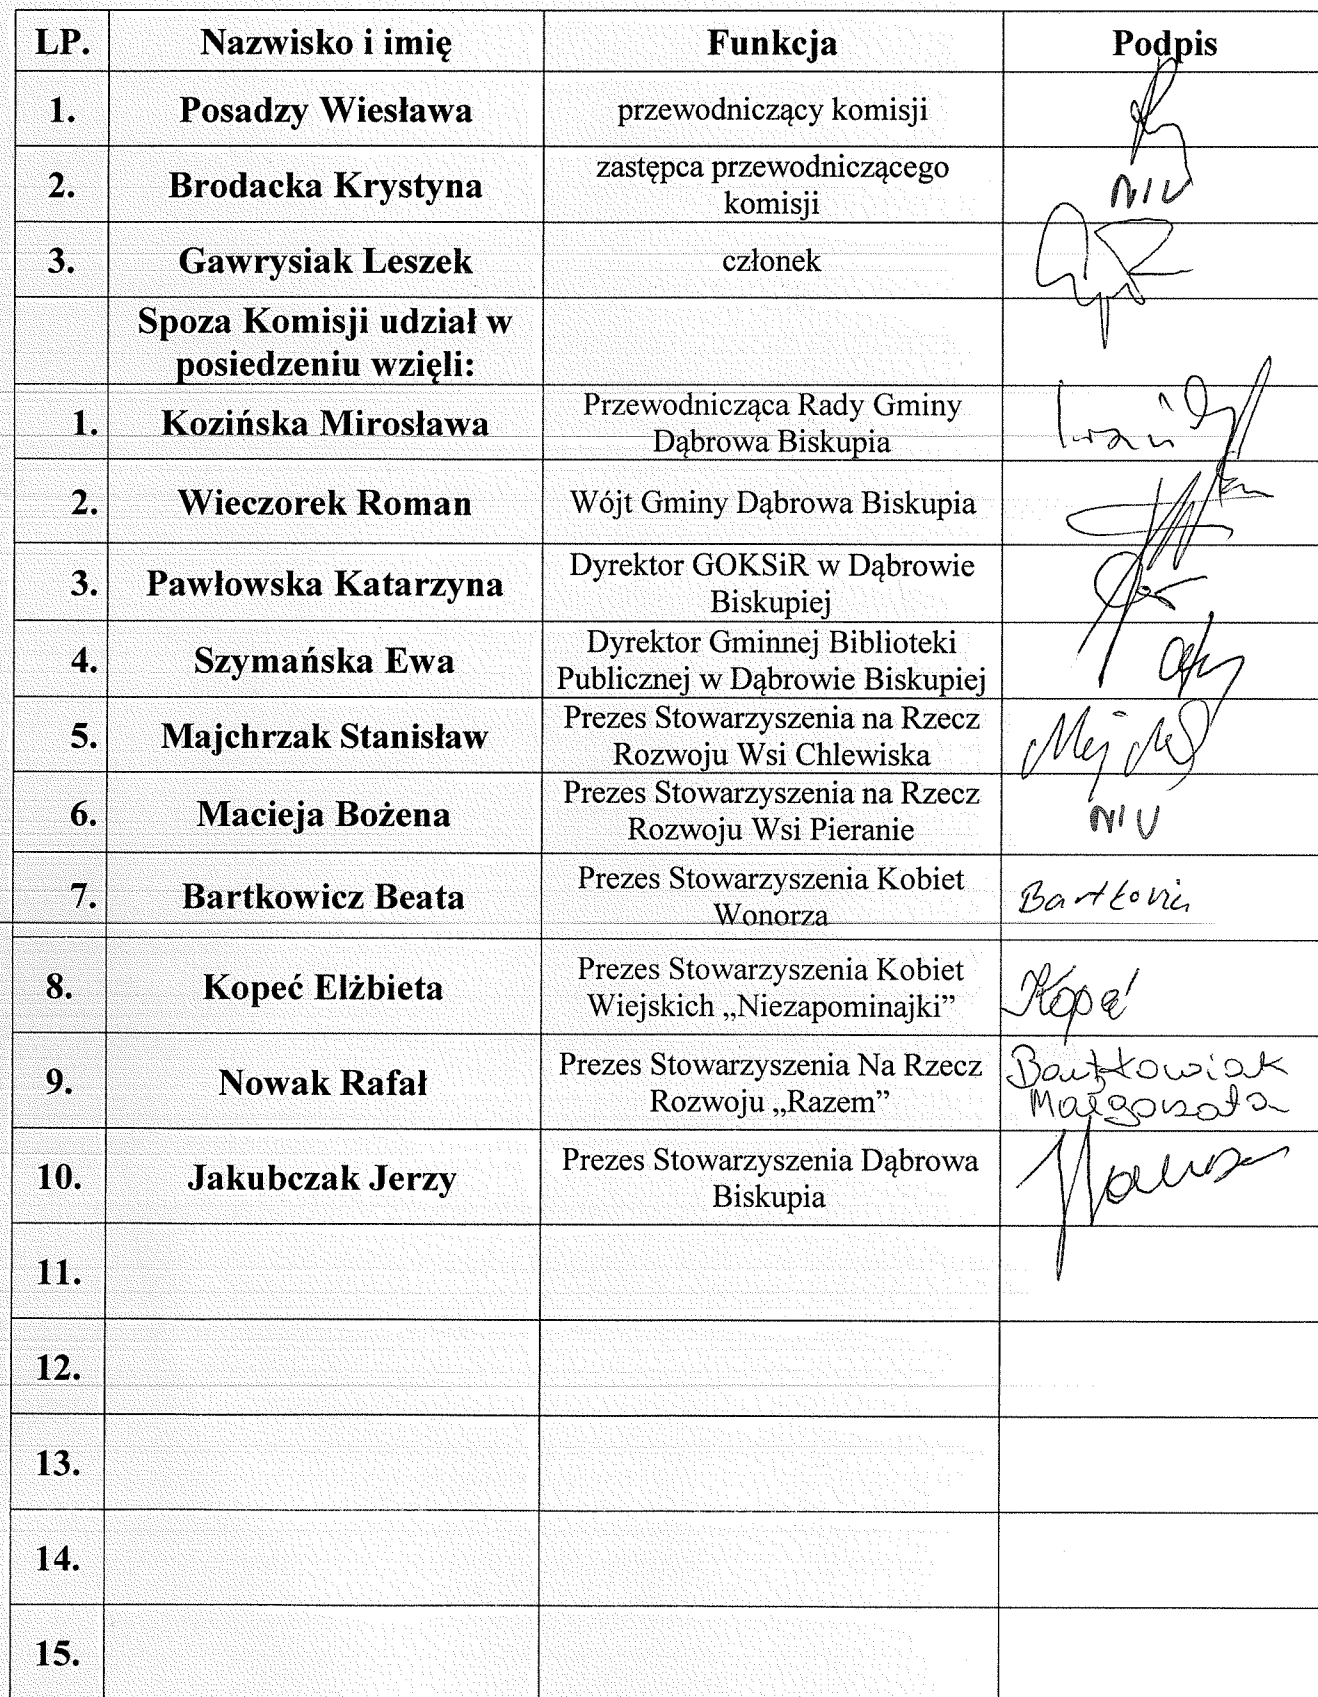 LP. Nazwisko i imię Funkcja Podpis
1. Posadzy Wiesława przewodniczący komisji
2. Brodacka Krystyna zastępca przewodniczącego
komisji
NIU
3. Gawrysiak Leszek członek
Spoza Komisji udział w
posiedzeniu wzięli:
1. Kozińska Mirosława Przewodnicząca Rady Gminy
Dąbrowa Biskupia
2. Wieczorek Roman Wójt Gminy Dąbrowa Biskupia
3. Pawłowska Katarzyna Dyrektor GOKSiR w Dąbrowie
Biskupiej
4. Szymańska Ewa Dyrektor Gminnej Biblioteki
Publicznej w Dąbrowie Biskupiej
5. Majchrzak Stanisław Prezes Stowarzyszenia na Rzecz
Rozwoju Wsi Chlewiska
6. Macieja Bożena Prezes Stowarzyszenia na Rzecz
Rozwoju Wsi Pieranie
NIU
7. Bartkowicz Beata Prezes Stowarzyszenia Kobiet
Wonorza
8. Kopeć Elżbieta Prezes Stowarzyszenia Kobiet
Wiejskich „Niezapominajki”
Kopeć
9. Nowak Rafał Prezes Stowarzyszenia Na Rzecz
Rozwoju „Razem”
Bartkowiak
Małgorzata
10. Jakubczak Jerzy Prezes Stowarzyszenia Dąbrowa
Biskupia
11.
12.
13.
14.
15.